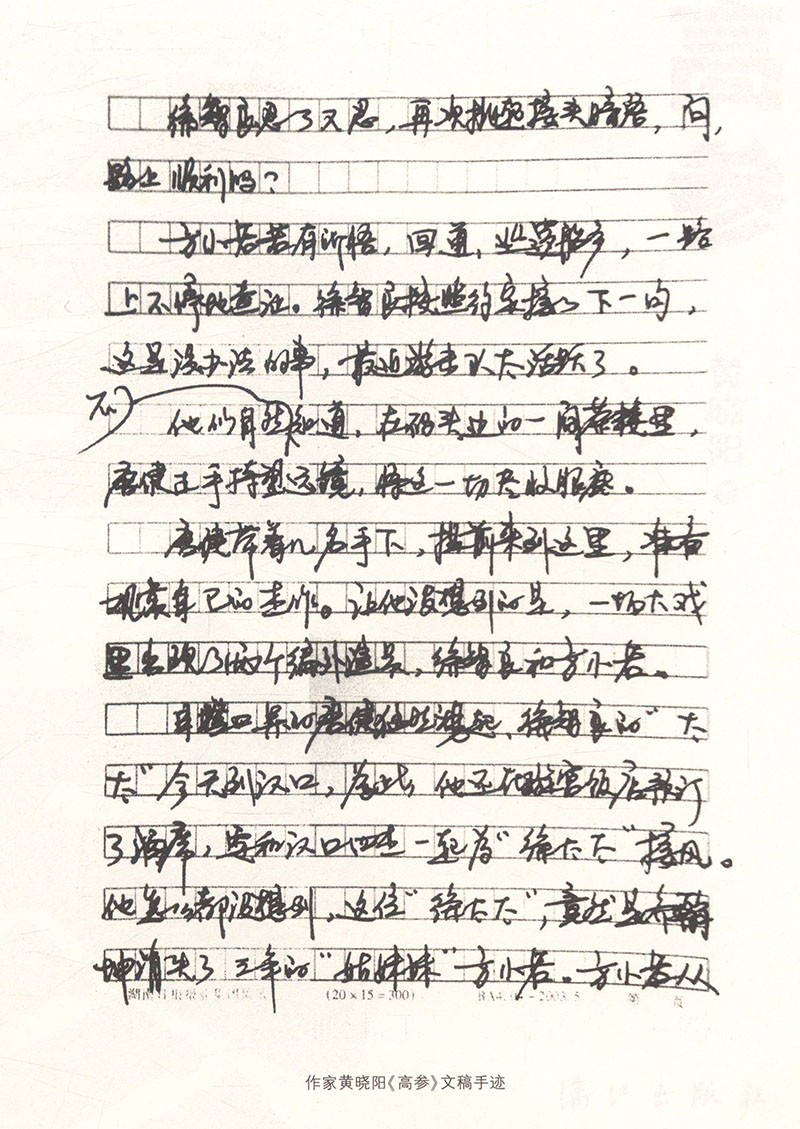 徐智良思了又思，再次挑起接头暗语，问，
路上顺利吗？
方小若若有所悟，回道，这船，一路
上不停地查证。徐智良按照约定接以下一句，
这是没办法的事，最近游击队太活跃了。
不
他们自然知道，在码头边的一间茶楼里，
唐健正手持望远镜，将这一切尽收眼底。
唐健带着几名手下，提前来到这里，准备
观赏自己的杰作。让他没想到的是，一场大戏
里出现了两个编外演员，徐智良和方小若。
唐健，徐智良的“太
太”今天到汉口，为此他还在璇宫饭店预订
了酒席，要和汉口四杰一起为“徐太太”接风。
他怎么都没想到，这位“徐太太”，竟然是
消失了三年的“姑妹妹”方小若。方小若从
(20×15=300)
作家黄晓阳《高参》文稿手迹